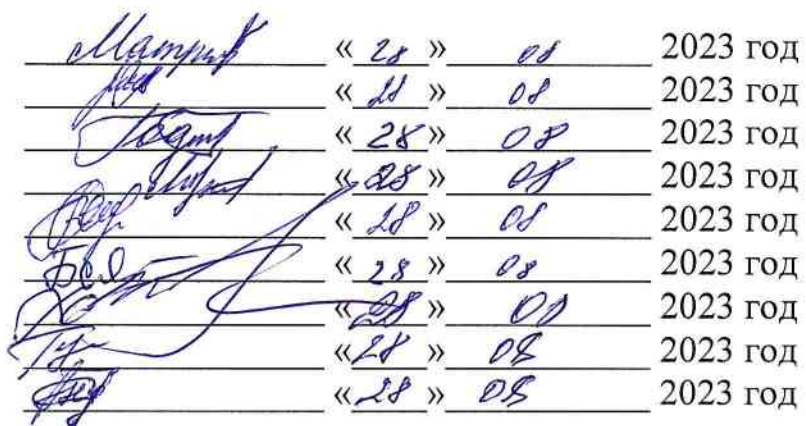 « 28 » 08 2023 год
« 28 » 08 2023 год
« 28 » 08 2023 год
« 28 » 08 2023 год
« 28 » 08 2023 год
« 28 » 08 2023 год
« 28 » 08 2023 год
« 28 » 08 2023 год
« 28 » 08 2023 год